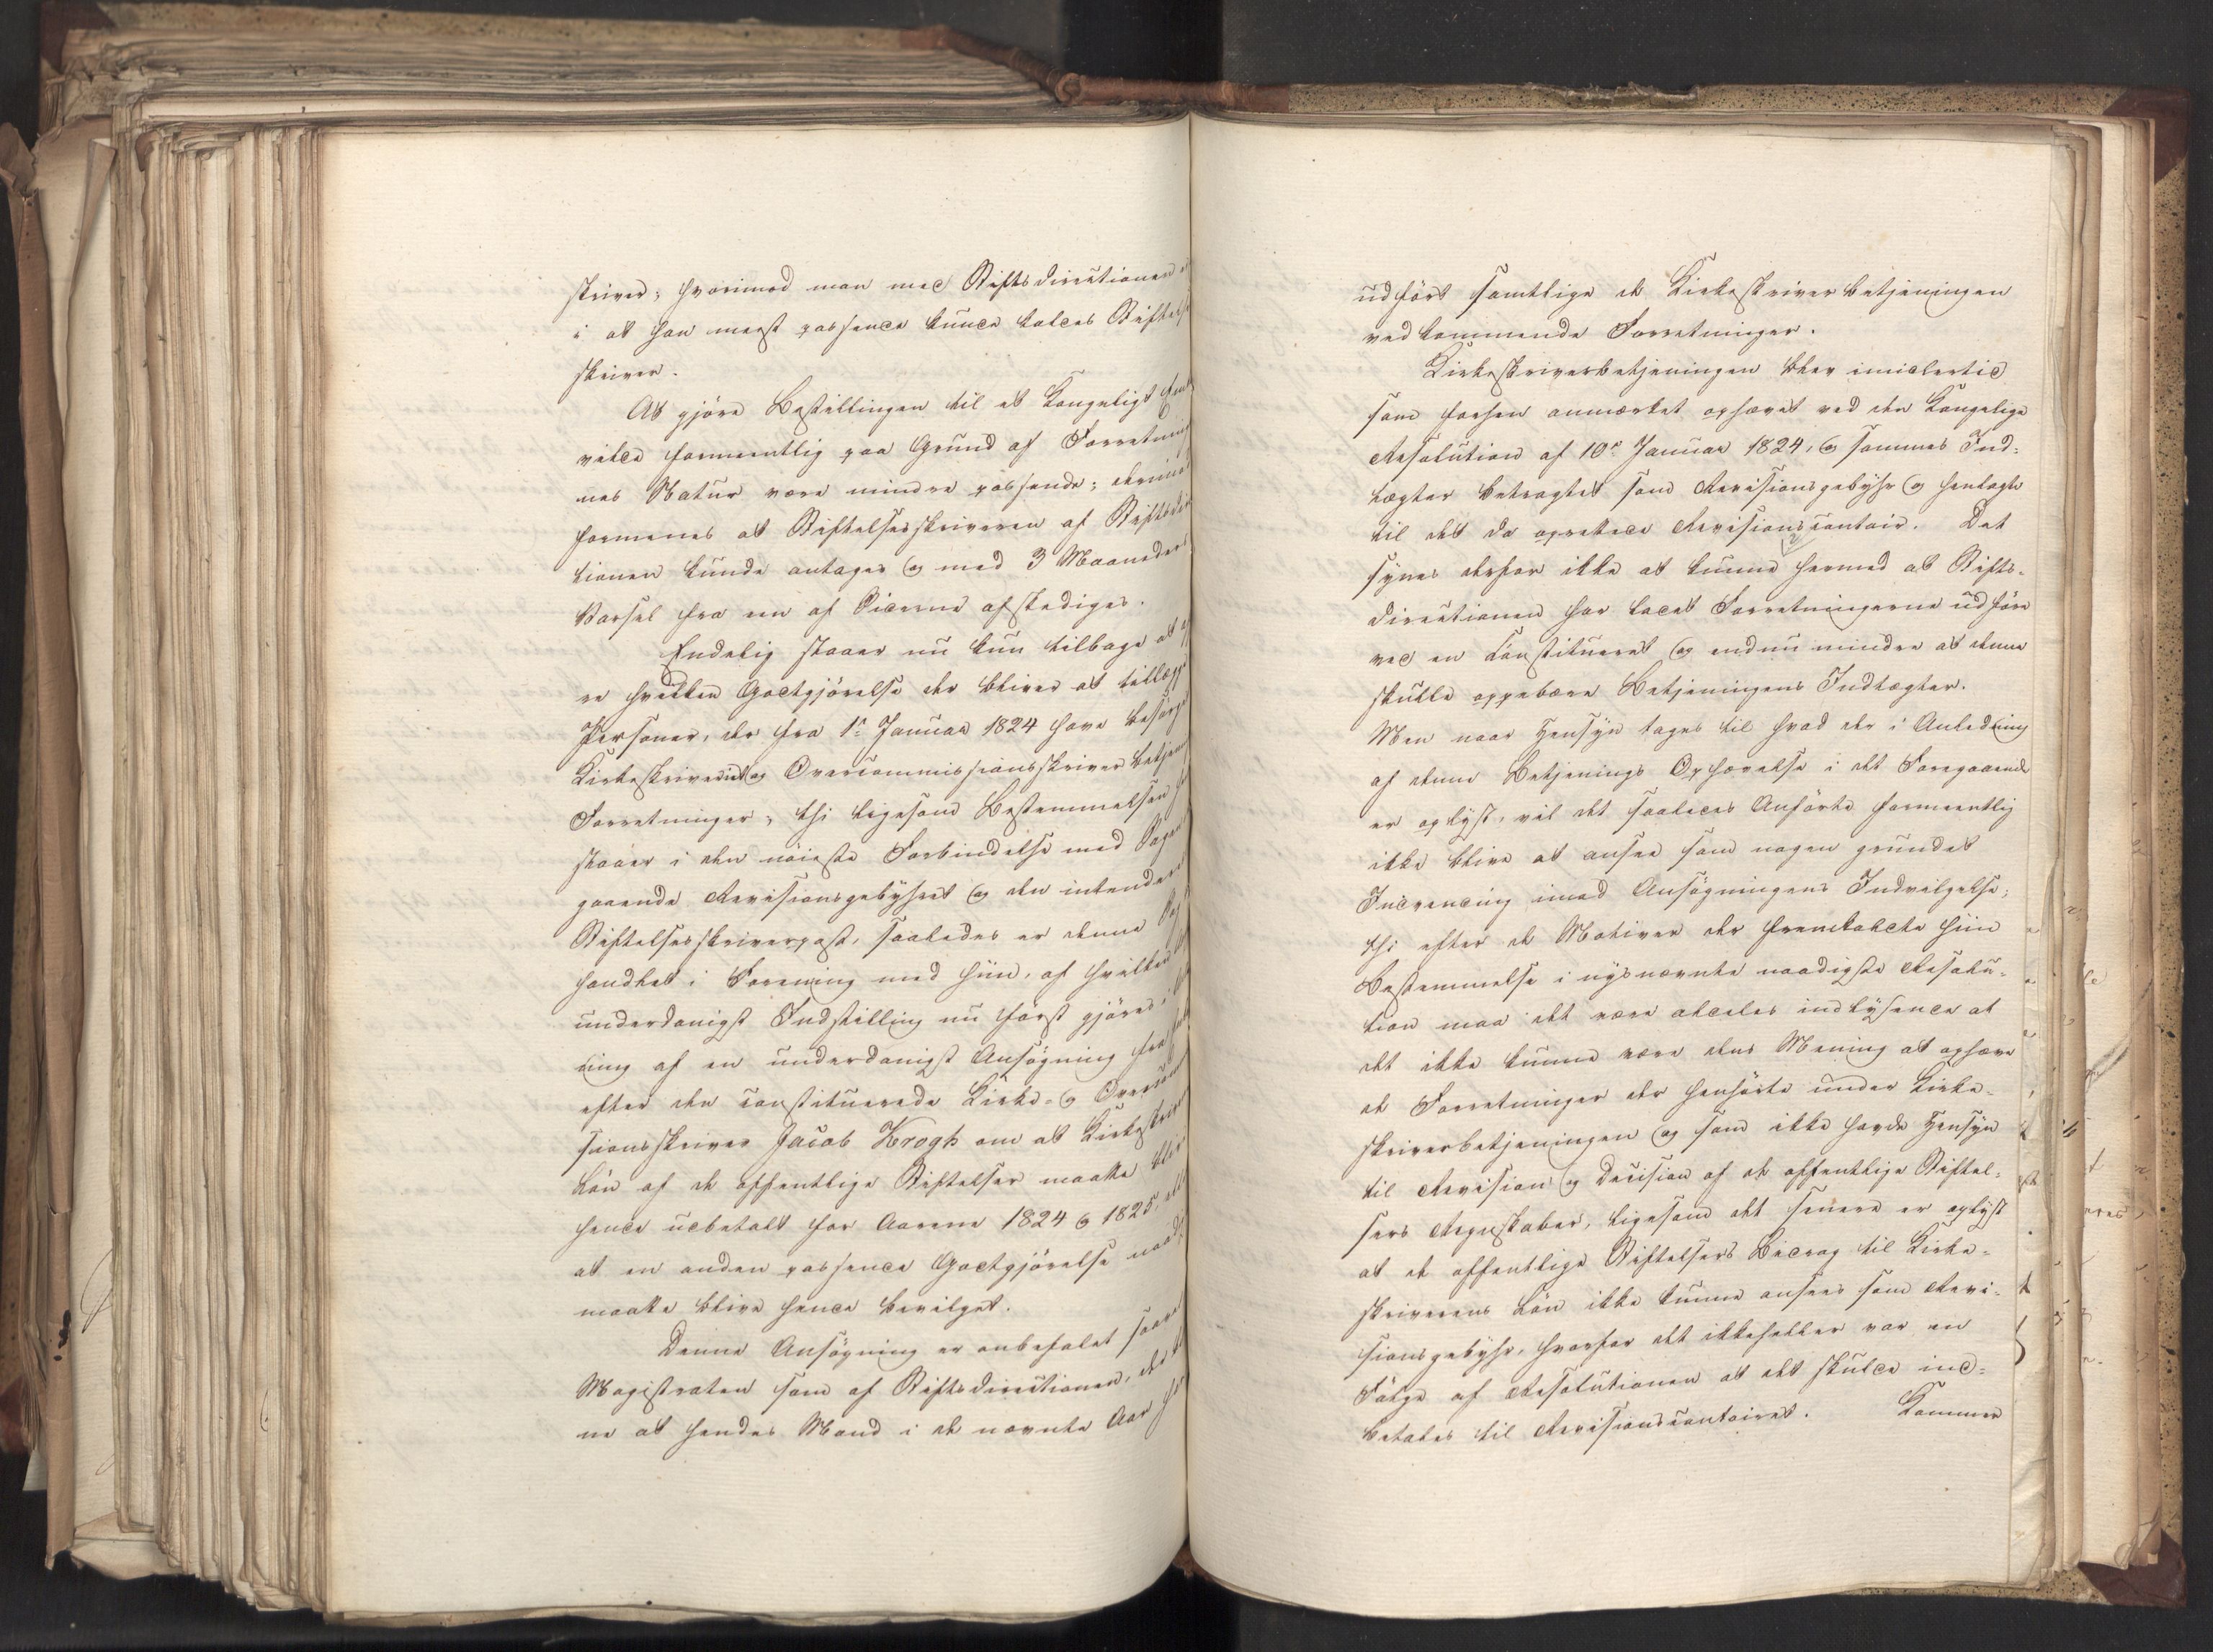 skriver; hvorimod man med Stiftsdirectionen
i at han meest passende kunde kaldes Stiftelses
skriver.
At gjöre Bestillingen til et Kongeligt
vilde formeentlig paa Grund af Forretnin
nes Natur være mindre passende; derimod
formenes at Stiftelsesskriveren af Stiftsdir
tionen kunde antages og med 3 Maaneders
Varsel fra en af Siderne afskediges.
Endelig staaer nu kun tilbage at
re hvilken Godtgjörelse der bliver at tillægge
Personer, der fra 1r Januar 1824 have besörge
Kirkeskriver og Overcommissionsskriver Betjen
Forretninger; thi ligesom Bestemmelsen
staaer i den nöieste Forbindelse med
gaaende Revisionsgebyhret og den intenderede
Stiftelsesskriverpost, saaledes er denne Sag
handlet i Forening med hiin, af hvilken
underdanigst Indstilling nu först gjöres i
ning af en underdanigst Ansögning fra
efter den constituerede Kirke- og Overcom
sionsskriver Jacob Krogh om at Kirkeskriver
Lön af de offentlige Stiftelser maatte bliv
hende udbetalt for Aarene 1824 og 1825, ell
at en anden passende Godtgjörelse naad
maatte blive hende bevilget.
Denne Ansögning er anbefalet saavel
Magistraten som af Stiftsdirectionen, der
ne at hendes Mand i de nævnte Aar
udfört samtlige de Kirkeskriverbetjeningen
vedkommende Forretninger.
Kirkeskriverbetjeningen blev imidlertid
som forhen anmærket ophævet ved den Kongelige
Resolution af 10de Januar 1824, og sammes Ind-
tægter betragtet som Revisionsgebyhr og henlagte
til det da oprettede Revisionscontoir. Det
synes derfor ikke at kunne hermed at Stifts-
directionen har ladet Forretningerne udföre
ved en Constitueret og endnu mindre at denne
skulle oppebære Betjeningens Indtægter.
Men naar Hensyn tages til hvad der i Anledning
af denne Betjenings Ophævelse i det Foregaaende
er oplyst, vil det saaledes Anförte formeentlig
ikke blive at ansee som nogen grundet
Indvending imod Ansögningens Indvilgelse;
thi efter de Motiver der fremkaldte hiin
Bestemmelse i nysnævnte naadigste Resolu-
tion maa det være aldeles indlysende at
det ikke kunne være dens Mening at ophæve
de Forretninger der henhörte under Kirke-
skriverbetjeningen og som ikke havde Hensyn
til Revision og Decision af de offentlige Stiftel-
sers Regnskaber, ligesom det senere er oplyst
at de offentlige Stiftelsers Bidrag til Kirke-
skriverens Lön ikke kunne ansees som Revi-
sionsgebyhr, hvorfor det ikkeheller var en
Fölge af Resolutionen at det skulde ind-
betales til Revisionscontoiret. Kammer